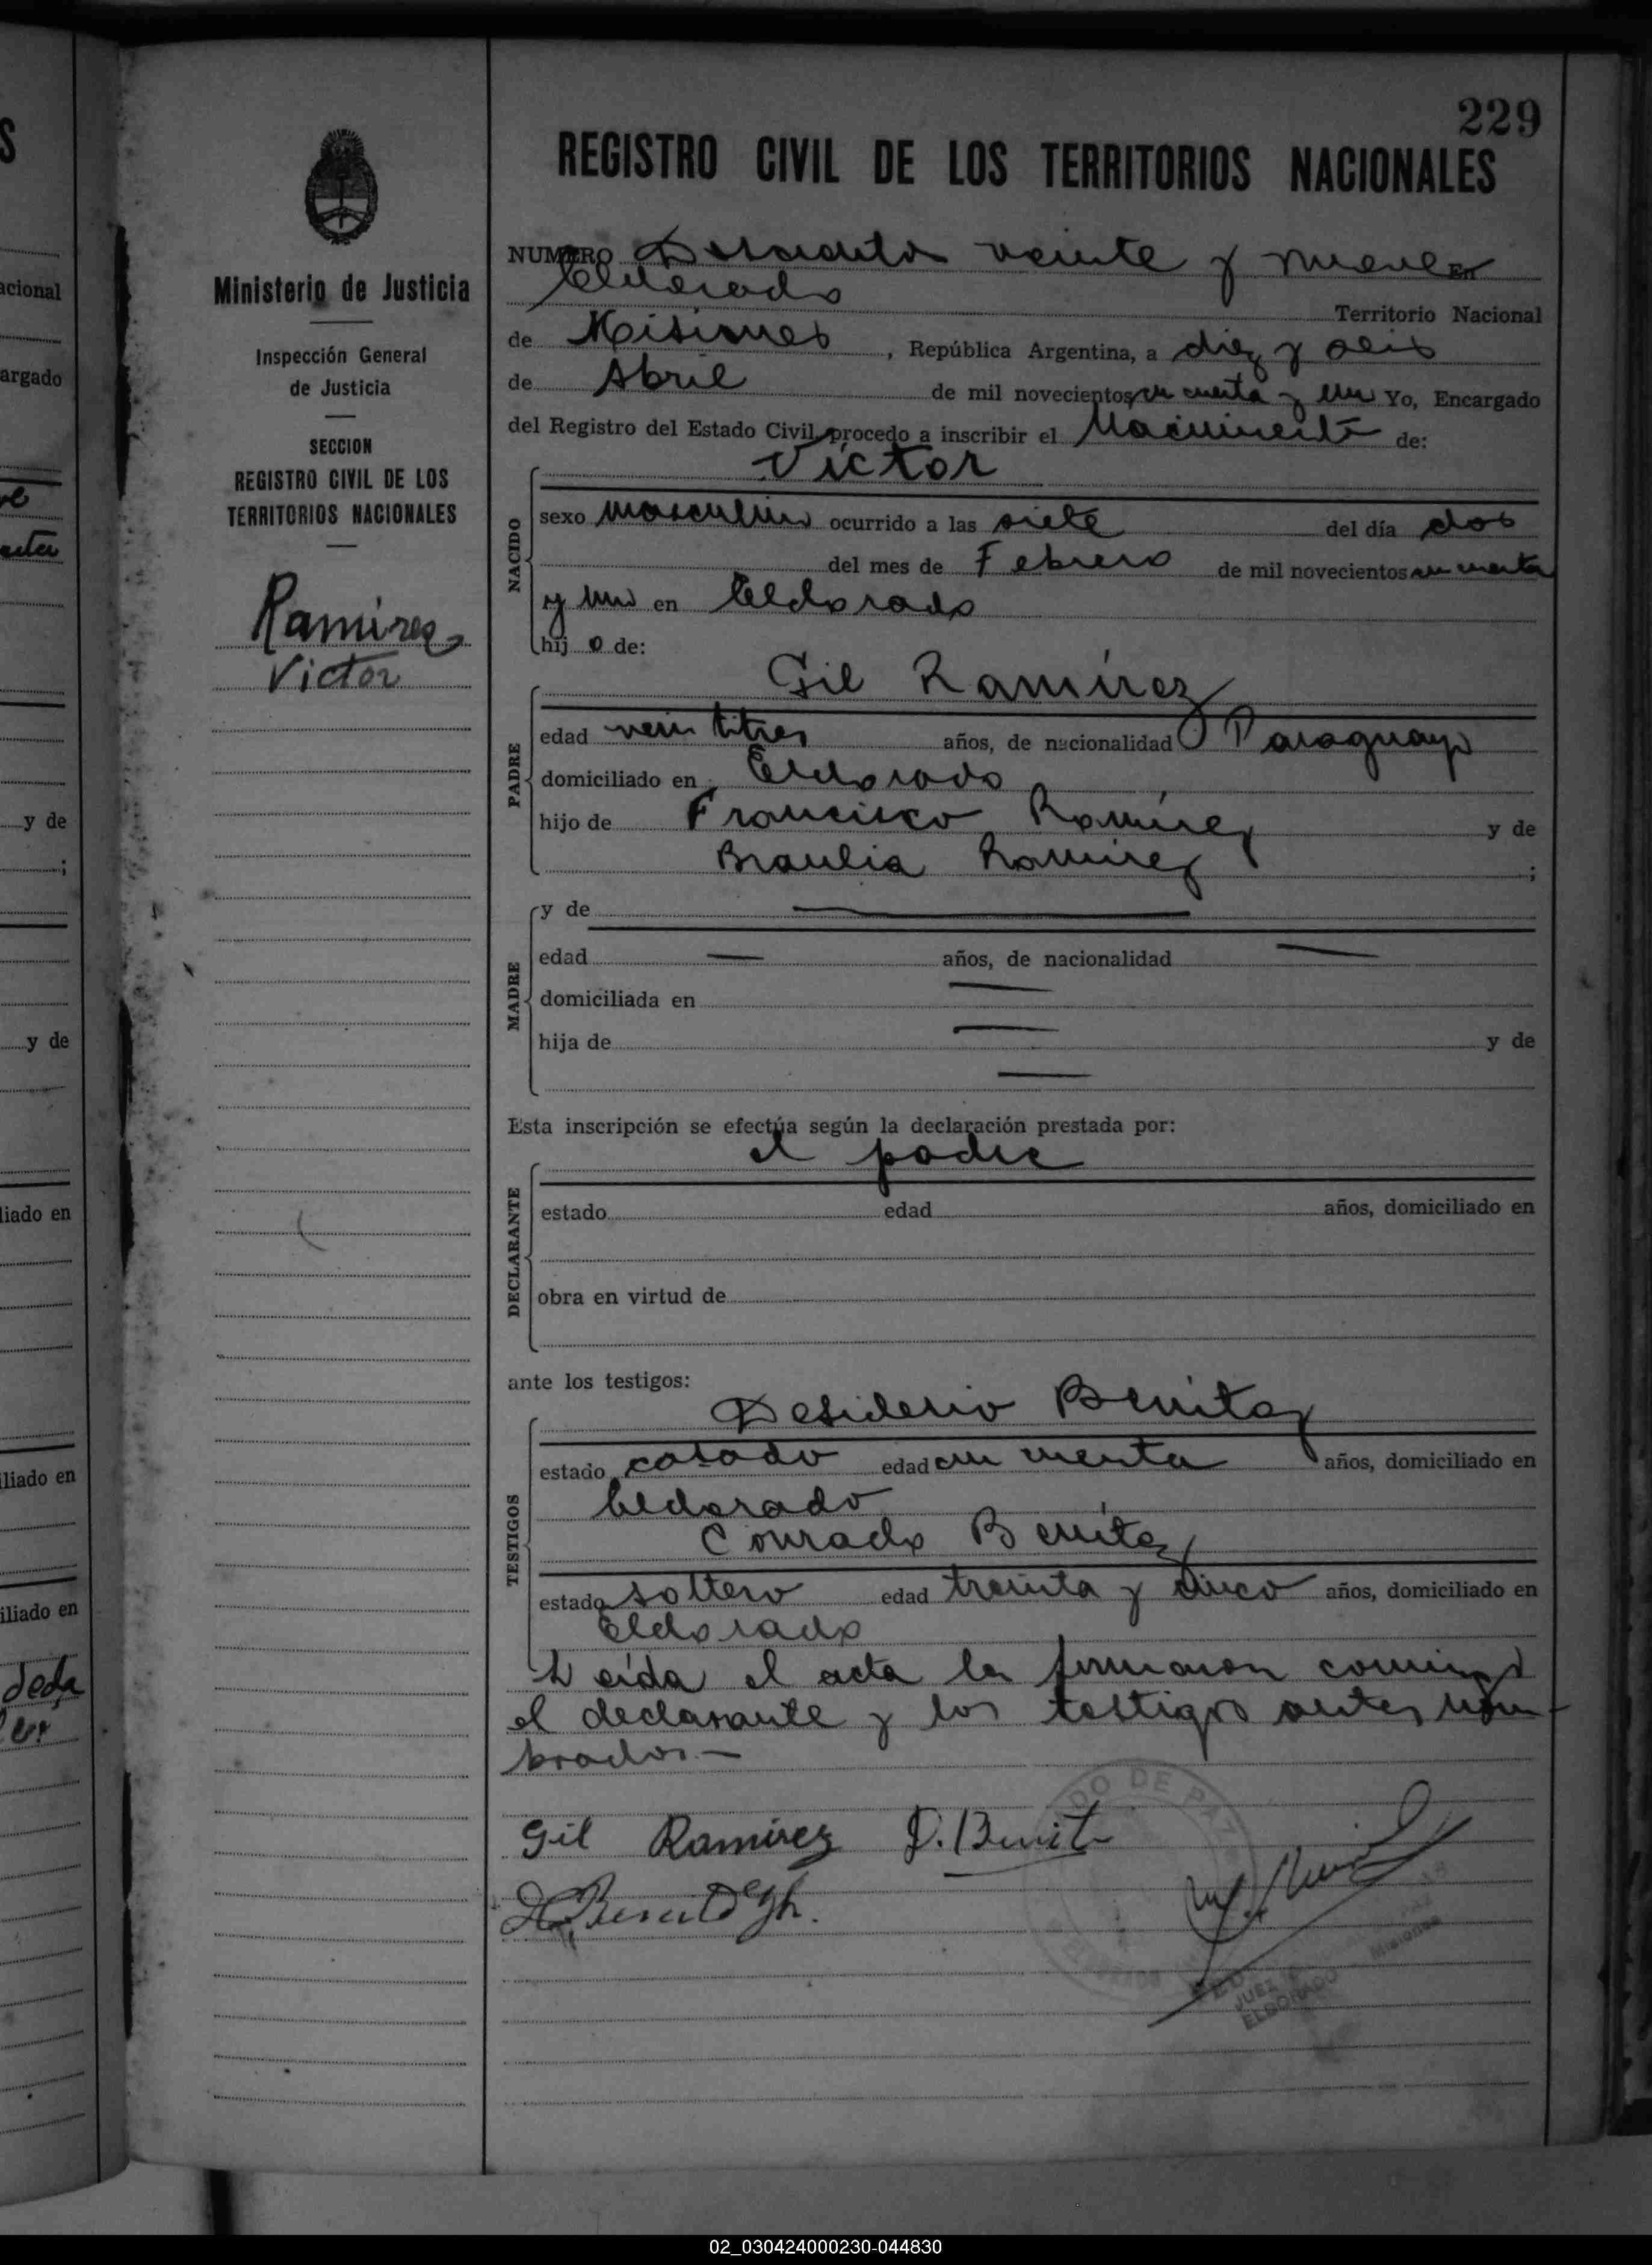 229
REGISTRO CIVIL DE LOS TERRITORIOS NACIONALES
Ministerio de Justicia
Inspección General
de Justicia
SECCION
REGISTRO CIVIL DE LOS
TERRITORIOS NACIONALES
Ramirez
Victor
NUMERO Doscientos veinte y nueve En
Eldorado Territorio Nacional
de Misiones, República Argentina, a diez y seis
de Abril de mil novecientos cincuenta y uno Yo, Encargado
del Registro del Estado Civil, procedo a inscribir el Nacimiento de:
Víctor
NACIDO
sexo masculino ocurrido a las siete del día dos
del mes de Febrero de mil novecientos cincuenta
y uno en Eldorado
hij o de:
Gil Ramírez
PADRE
edad veintitres años, de nacionalidad Paraguayo
domiciliado en Eldorado
hijo de Francisco Ramírez y de
Braulia Ramirez ;
MADRE
y de
edad años, de nacionalidad
domiciliada en
hija de y de
Esta inscripción se efectúa según la declaración prestada por:
el padre
DECLARANTE
estado edad años, domiciliado en
obra en virtud de
ante los testigos:
Desiderio Benitez
TESTIGOS
estado casado edad cincuenta años, domiciliado en
Eldorado
Conrado Benítez
estado soltero edad treinta y cinco años, domiciliado en
Eldorado
Leída el acta la firmaron conmigo
el declarante y los testigos antes nom-
brados.—
Gil Ramírez D. Benit
JUEZ
ELDORADO Misiones
y de
y de
liado en
liado en
iliado en
acional
argado
02_030424000230-044830